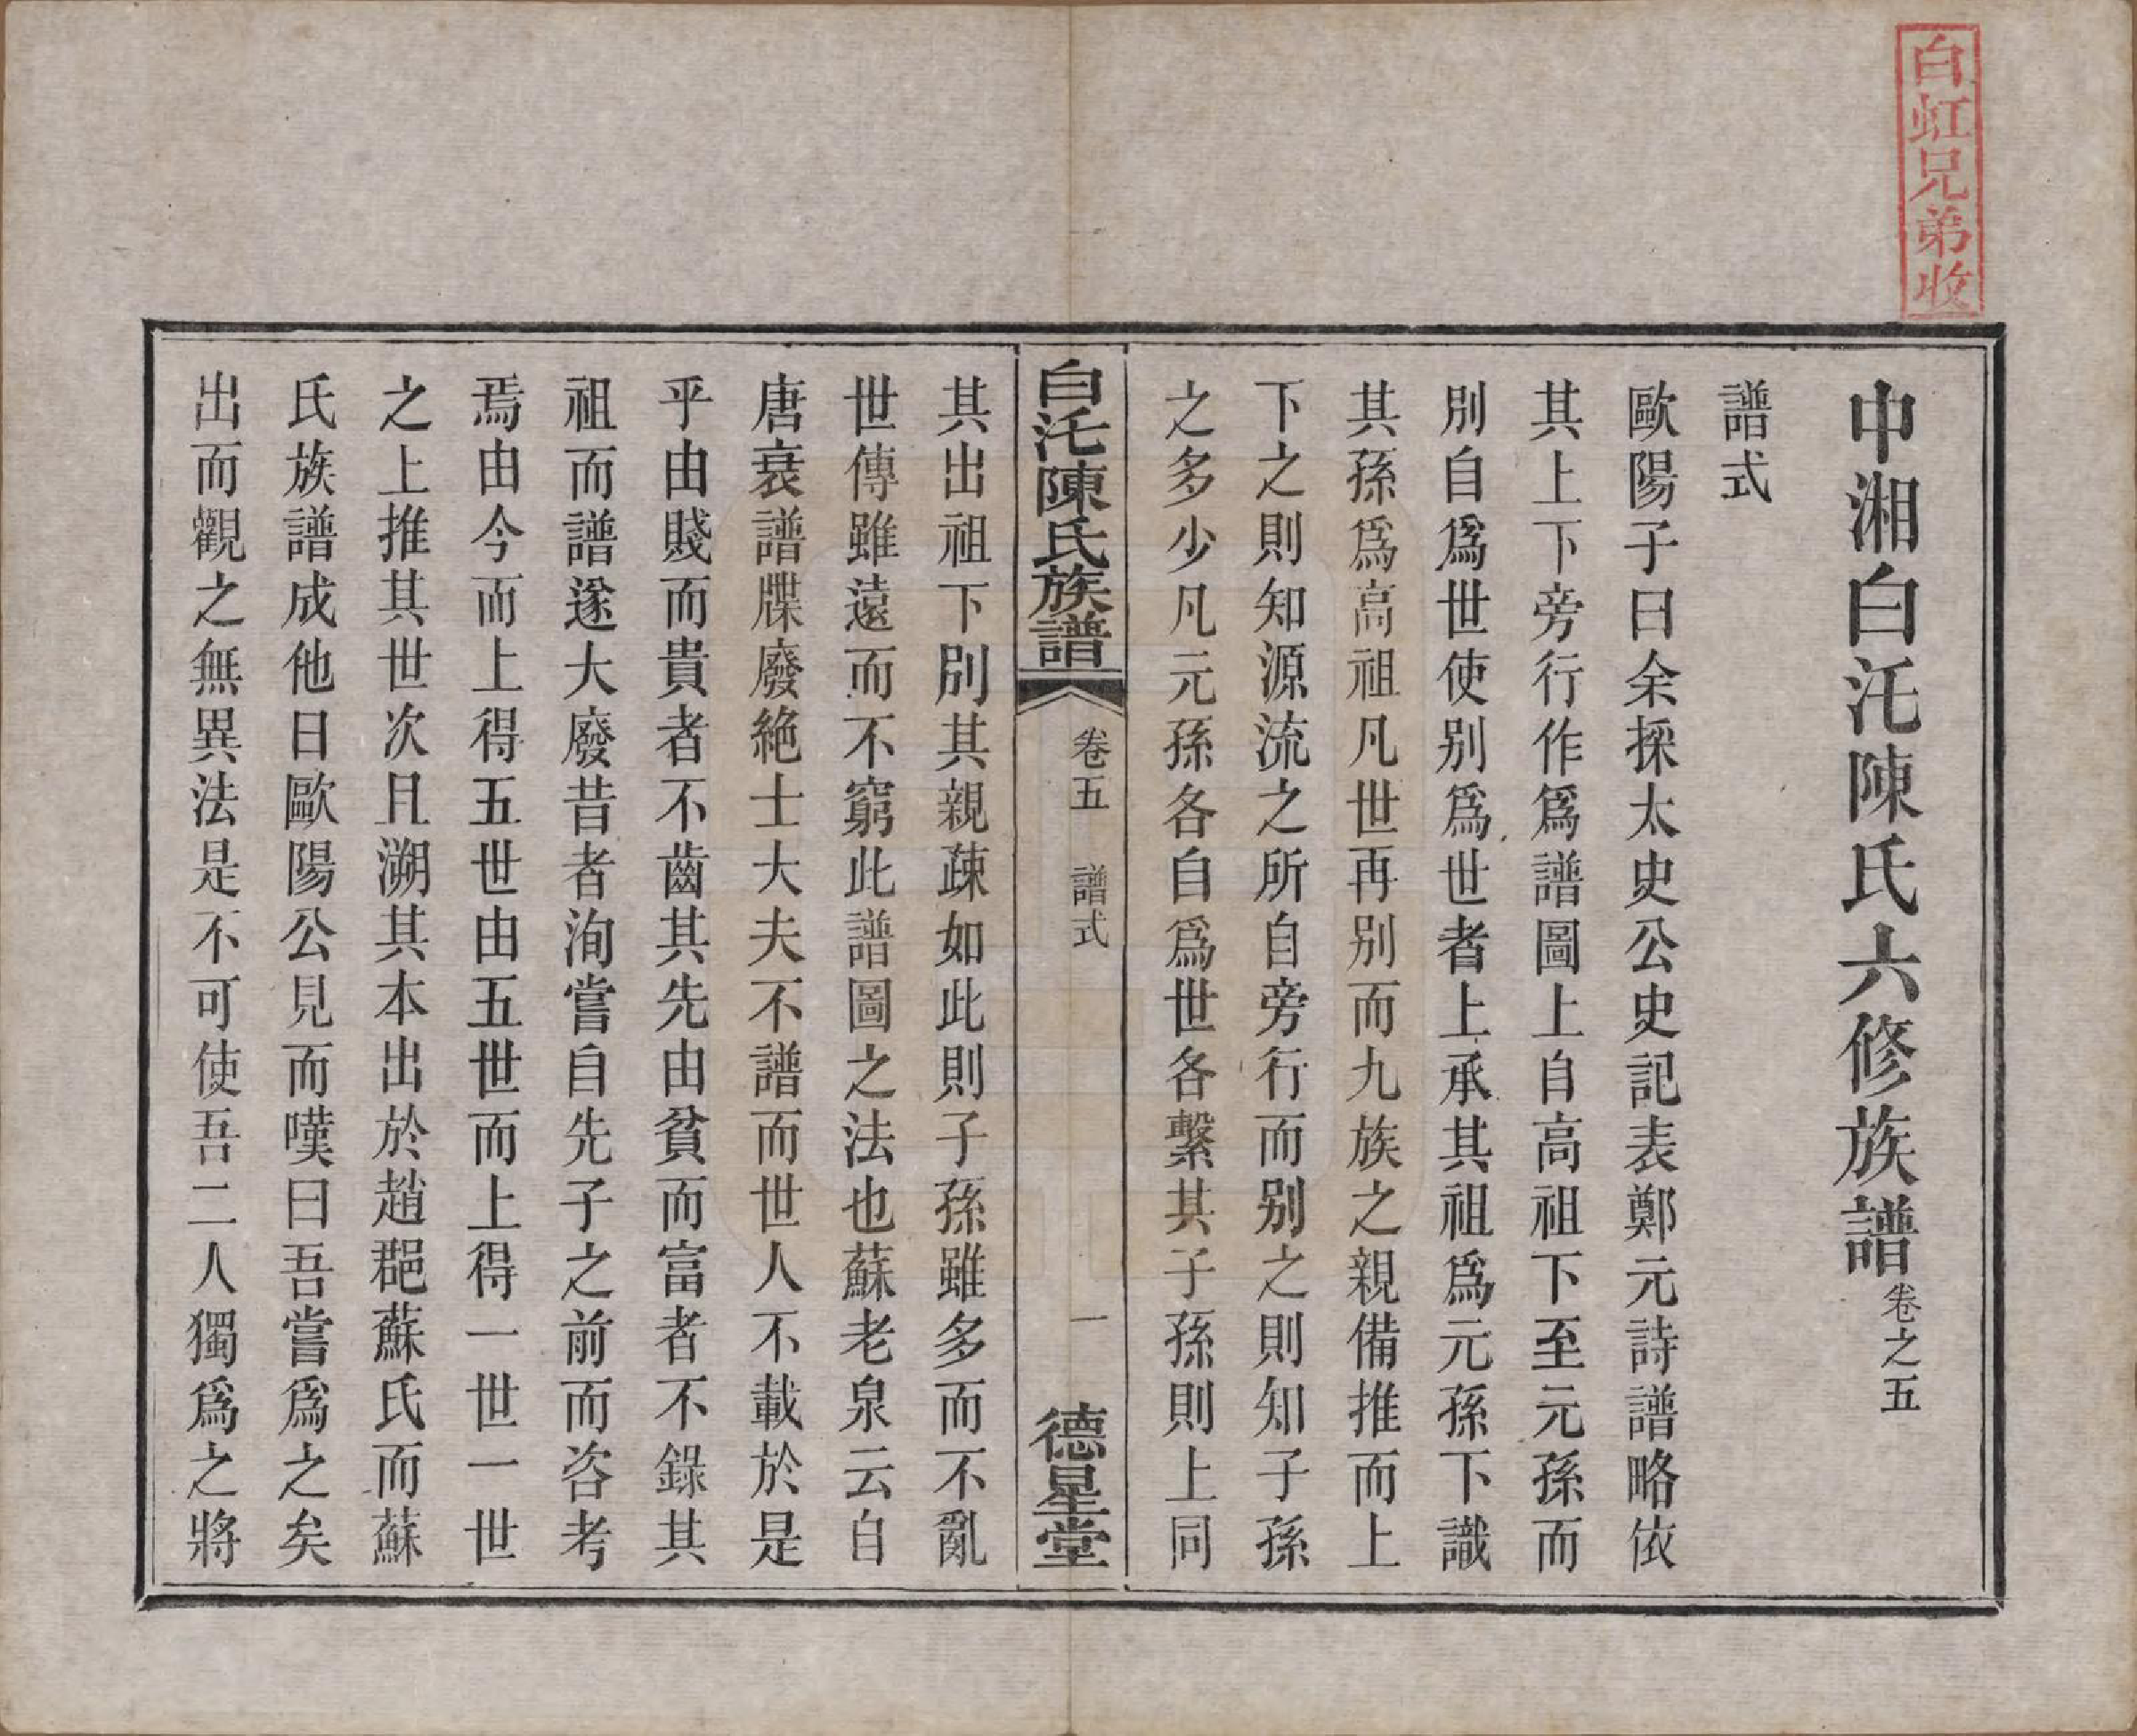 白虹兄弟收
中湘白沱陳氏六修族譜卷之五
譜式
歐陽子曰余採太史公史記表鄭元詩譜略依
其上下旁行作爲譜圖上自高祖下至元孫而
別自爲世使別爲世者上承其祖爲元孫下識
其孫爲高祖凡世再別而九族之親備推而上
下之則知源流之所自旁行而別之則知子孫
之多少凡元孫各自爲世各繫其子孫則上同
白沱陳氏族譜 卷五 譜式 一 德星堂
其出祖下別其親疎如此則子孫雖多而不亂
世傳雖遠而不窮此譜圖之法也蘇老泉云自
唐衰譜牒廢絶士大夫不譜而世人不載於是
乎由賤而貴者不齒其先由貧而富者不錄其
祖而譜遂大廢昔者洵嘗自先子之前而咨考
焉由今而上得五世由五世而上得一世一世
之上推其世次且溯其本出於趙郡蘇氏而蘇
氏族譜成他日歐陽公見而嘆曰吾嘗爲之矣
出而觀之無異法是不可使吾二人獨爲之將